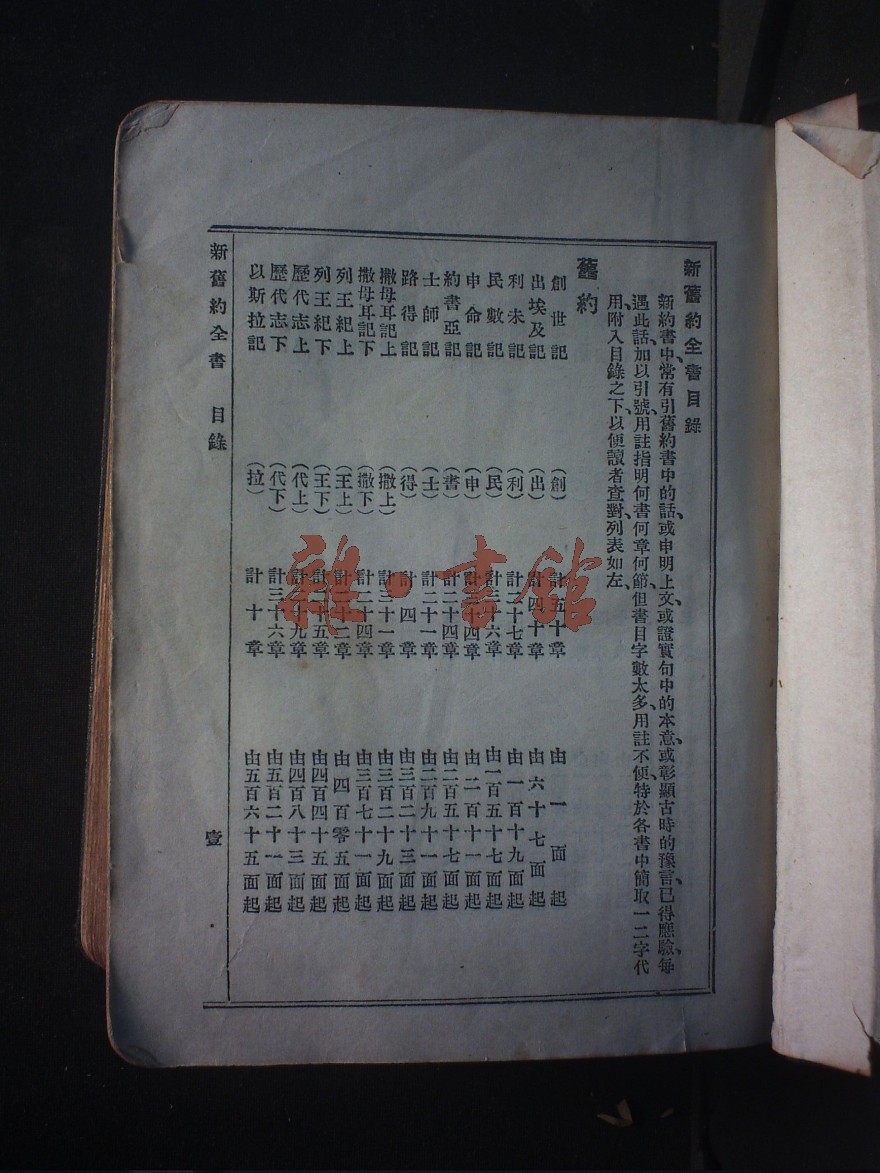 新舊約全書目錄
新約書中、常有引舊約書中的話、或申明上文、或證實句中的本意、或彰顯古時的豫言、已得應驗、每
遇此話、加以引號、用註指明何書何章何節、但書目字數太多、用註不便、特於各書中簡取一二字代
用、附入目錄之下、以便讀者查對、列表如左、
舊約
創世記 （創） 計五十章 由一面起
出埃及記 （出） 計四十章 由六十七面起
利未記 （利） 計二十七章 由一百十九面起
民數記 （民） 計三十六章 由一百五十七面起
申命記 （申） 計三十四章 由二百十一面起
約書亞記 （書） 計二十四章 由二百五十七面起
士師記 （士） 計二十一章 由二百九十一面起
路得記 （得） 計四章 由三百二十三面起
撒母耳記上 （撒上） 計三十一章 由三百二十九面起
撒母耳記下 （撒下） 計二十四章 由三百七十一面起
列王紀上 （王上） 計二十二章 由四百零五面起
列王紀下 （王下） 計二十五章 由四百四十五面起
歷代志上 （代上） 計二十九章 由四百八十三面起
歷代志下 （代下） 計三十六章 由五百二十一面起
以斯拉記 （拉） 計十章 由五百六十五面起
新舊約全書 目錄 壹
雜·書館